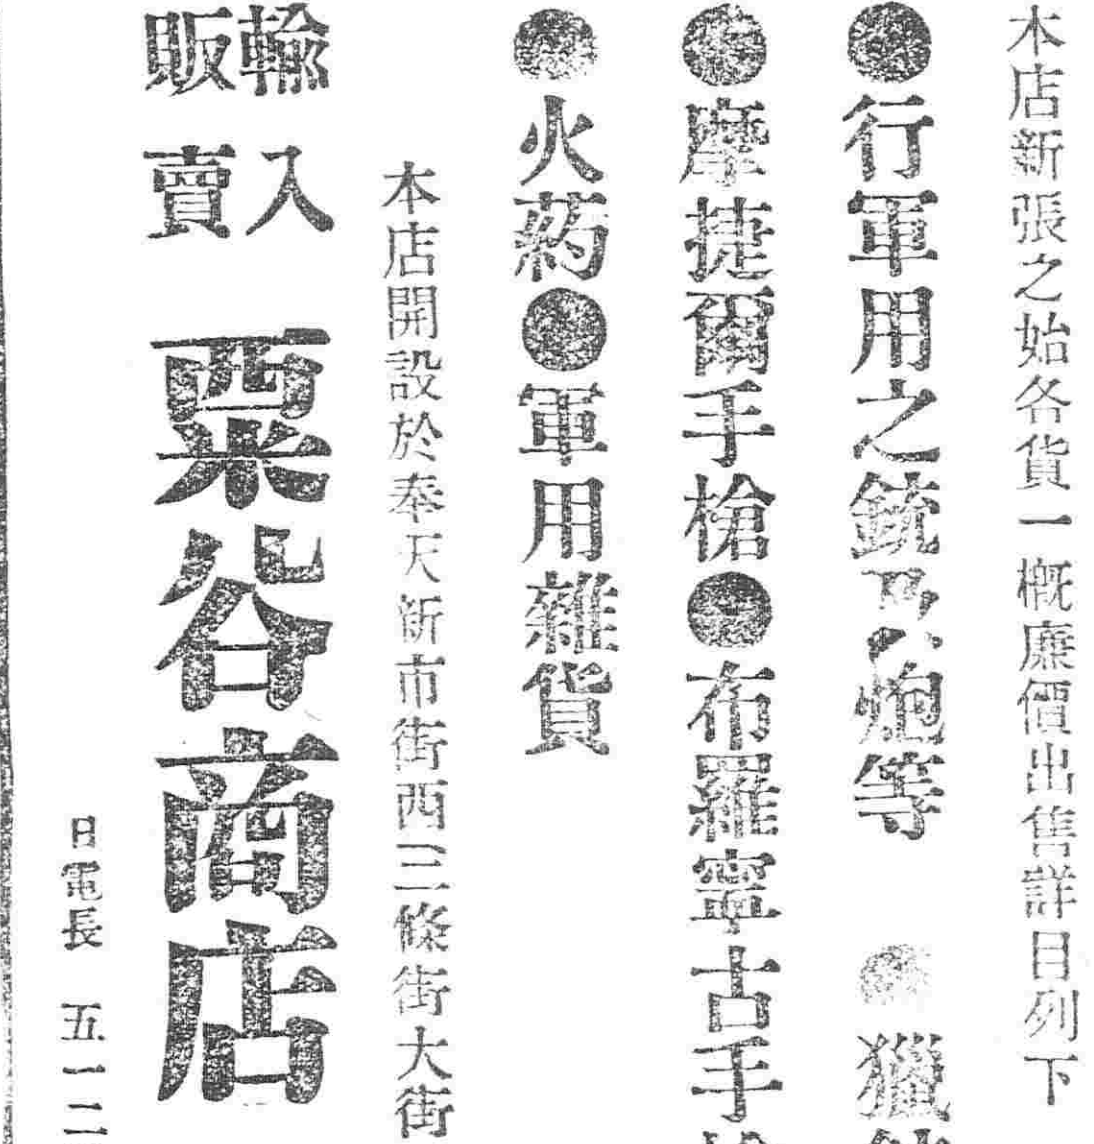 本店新張之始各貨一概廉價出售詳目列下
●行軍用之銃及炮等　●獵
●摩捷爾手槍●布羅寧古手槍
●火药●軍用雜貨
本店開設於奉天新市街西三條街大街
輸入
販賣
粟谷商店
日電長　五一二